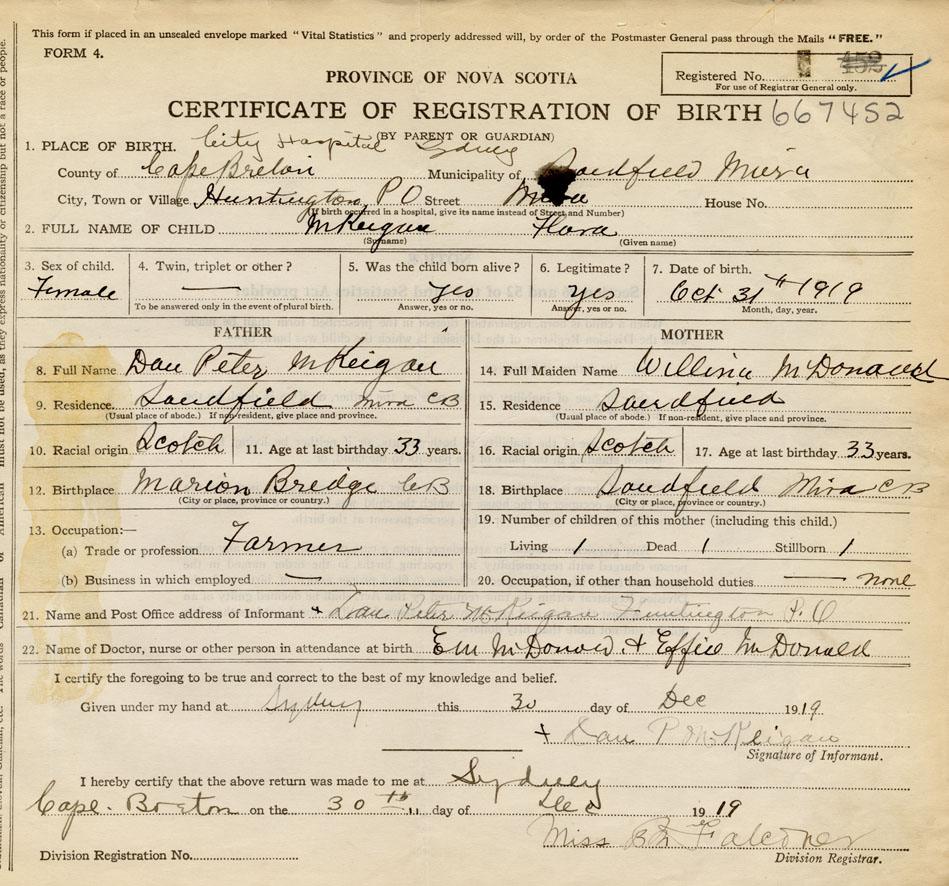 This form if placed in an unsealed envelope marked "Vital Statistics" and properly addressed will, by order of the Postmaster General pass through the Mails "FREE."
FORM 4.
PROVINCE OF NOVA SCOTIA
Registered No.
For use of Registrar General only.
CERTIFICATE OF REGISTRATION OF BIRTH 667452
(BY PARENT OR GUARDIAN)
1. PLACE OF BIRTH. City Hospital Sydney
County of Cape Breton Municipality of Sandfield Mira
City, Town or Village Huntington P O Street Mira House No.
(If birth occurred in a hospital, give its name instead of Street and Number)
2. FULL NAME OF CHILD McKeigan Flora
(Surname) (Given name)
3. Sex of child. 4. Twin, triplet or other? 5. Was the child born alive? 6. Legitimate? 7. Date of birth.
Female — yes yes Oct 31th 1919
To be answered only in the event of plural birth. Answer, yes or no. Answer, yes or no. Month, day, year.
FATHER MOTHER
8. Full Name Dan Peter McKeigan 14. Full Maiden Name Willina McDonald
9. Residence. Sandfield Mira CB 15. Residence Sandfield
(Usual place of abode.) If non-resident, give place and province. (Usual place of abode.) If non-resident, give place and province.
10. Racial origin Scotch 11. Age at last birthday 33 years. 16. Racial origin Scotch 17. Age at last birthday 33 years.
12. Birthplace Marion Bridge CB 18. Birthplace Sandfield Mira CB
(City or place, province or country.) (City or place, province or country.)
13. Occupation:— 19. Number of children of this mother (including this child.)
(a) Trade or profession Farmer Living 1 Dead 1 Stillborn 1
(b) Business in which employed — 20. Occupation, if other than household duties — none
21. Name and Post Office address of Informant + Dan Peter McKeigan Huntington P.O
22. Name of Doctor, nurse or other person in attendance at birth & Effie McDonald
I certify the foregoing to be true and correct to the best of my knowledge and belief.
Given under my hand at Sydney this 30 day of Dec 1919
+ Dan P McKeigan
Signature of Informant.
I hereby certify that the above return was made to me at Sydney
Cape Breton on the 30th day of Dec 1919
Miss Falconer
Division Registration No. Division Registrar.